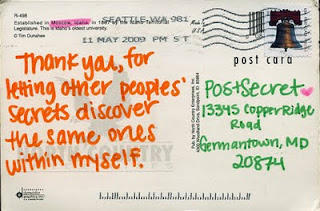 R-498
Established in Moscow, Idaho, in 1887 by the Idaho Territorial
Legislature. This is Idaho's oldest university.
© Tim Dunahee
SEATTLE WA 981
11 MAY 2009 PM 5 T
post card
Thank you, for
letting other peoples'
secrets discover
the same ones
within myself.
PostSecret
13345 Copper Ridge
Road
Germantown, MD
20874
NORTH COUNTRY
Pub. by North Country Enterprises, Inc.